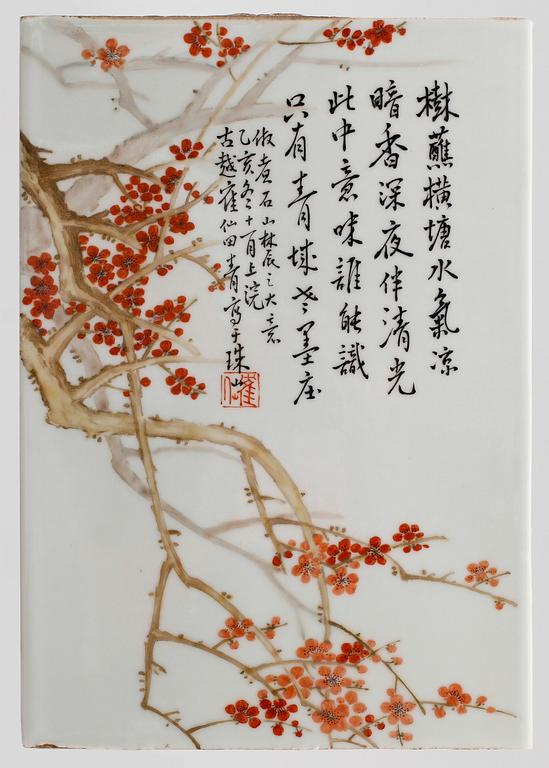 樹蘸橫塘水氣凉
暗香深夜伴清光
此中意味誰能識
只有青城老墨庄
倣煮石山林辰之大意
乙亥冬十一月上浣
古越崔仙田青寫于珠山